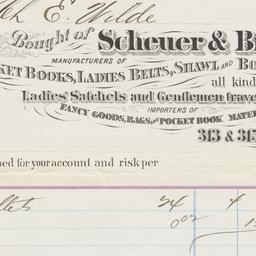 E. Wilde
Bought of Scheuer & B
MANUFACTURERS OF
KET BOOKS, LADIES BELTS, SHAWL AND BO
all kind
Ladies' Satchels and Gentlemen trave
IMPORTERS OF
FANCY GOODS, BAGS, AND POCKET BOOK MATE
313 & 31
ped for your account and risk per
24 4
0.02 1